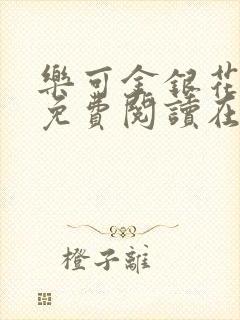 樂可金銀花
免費閱讀在
橙子離